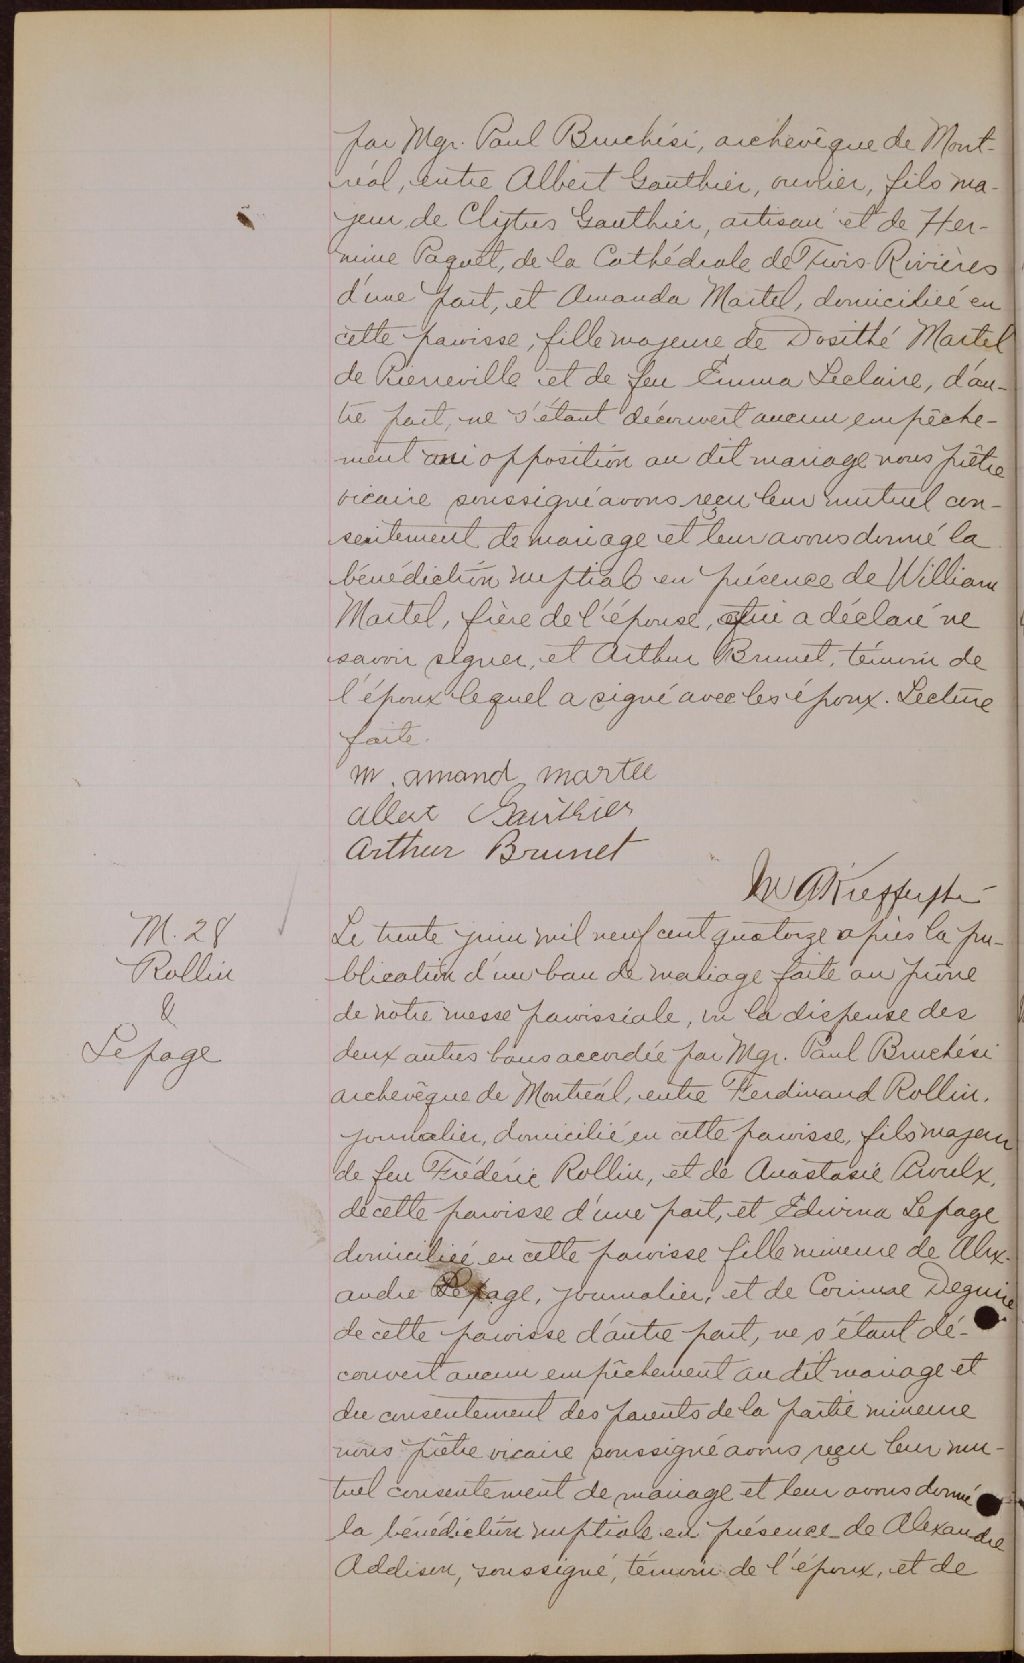 par Mgr. Paul Bruchési, archevêque de Mont-
réal, entre Albert Gauthier, ouvrier, fils ma-
jeur de Clytus Gauthier, artisan et de Her-
mine Paquet, de la Cathédrale de Trois-Rivières
d'une part, et Amanda Martel, domiciliée en
cette paroisse, fille majeure de Dosithé Martel
de Pierreville et de feu Emma Leclaire, d'au-
tre part, ne s'étant découvert aucun empêche-
ment ni opposition au dit mariage nous prêtre
vicaire soussigné avons reçu leur mutuel con-
sentement de mariage et leur avons donné la
bénédiction nuptiale en présence de William
Martel, frère de l'épouse, qui a déclaré ne
savoir signer, et Arthur Brunet, témoin de
l'époux lequel a signé avec les époux. Lecture
faite.
M. amand martel
albert Gauthier
Arthur Brunet
M. 28
Rollin
&
Lepage
Le trente juin mil neuf cent quatorze après la pu-
blication d'un ban de mariage faite au prône
de notre messe paroissiale, vu la dispense des
deux autres bans accordée par Mgr. Paul Bruchési
archevêque de Montréal, entre Ferdinand Rollin,
journalier, domicilié en cette paroisse, fils majeur
de feu Frédéric Rollin, et de Anastasie Proulx,
de cette paroisse d'une part, et Edwina Lepage
domiciliée en cette paroisse fille mineure de Alex-
andre Lepage, journalier, et de Corinne Deguire
de cette paroisse d'autre part, ne s'étant dé-
couvert aucun empêchement au dit mariage et
du consentement des parents de la partie mineure
nous prêtre vicaire soussigné avons reçu leur mu-
tuel consentement de mariage et leur avons donné
la bénédiction nuptiale en présence de Alexandre
Addison, soussigné, témoin de l'époux, et de